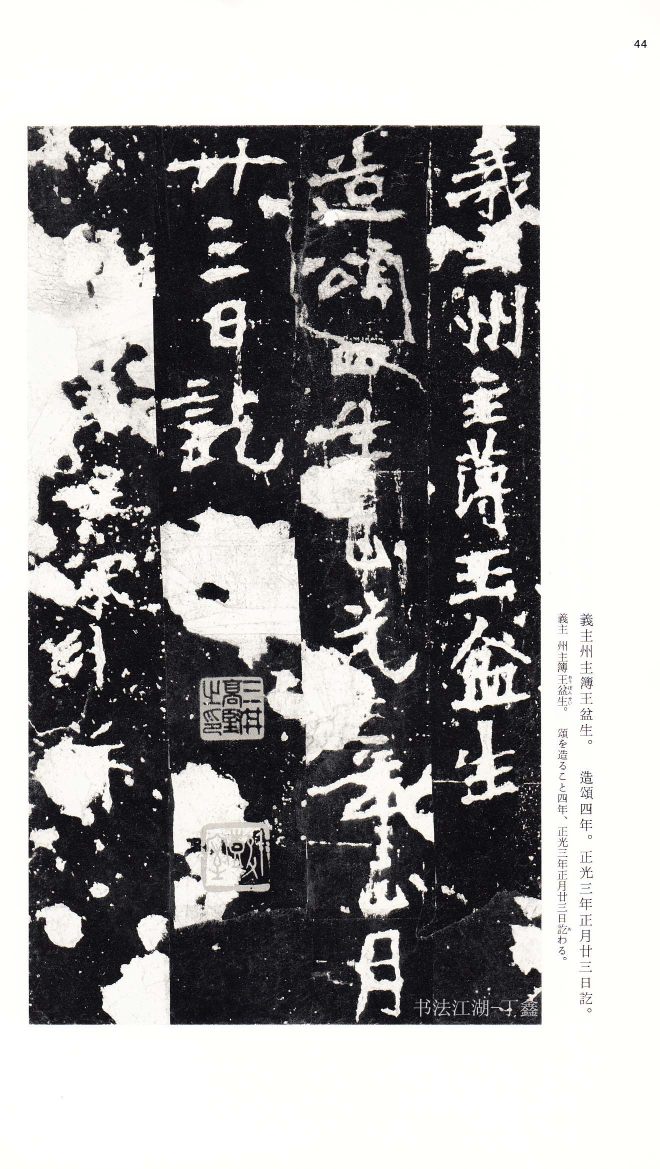 44
義主州主簿王盆生。 造頌四年。正光三年正月廿三日訖。
義主 州主簿王盆生。 頌を造ること四年、正光三年正月廿三日訖わる。
義主州主薄王盆生
造頌四年正光三年正月
廿三日訖
三井高堅之印
书法江湖-丁鑫